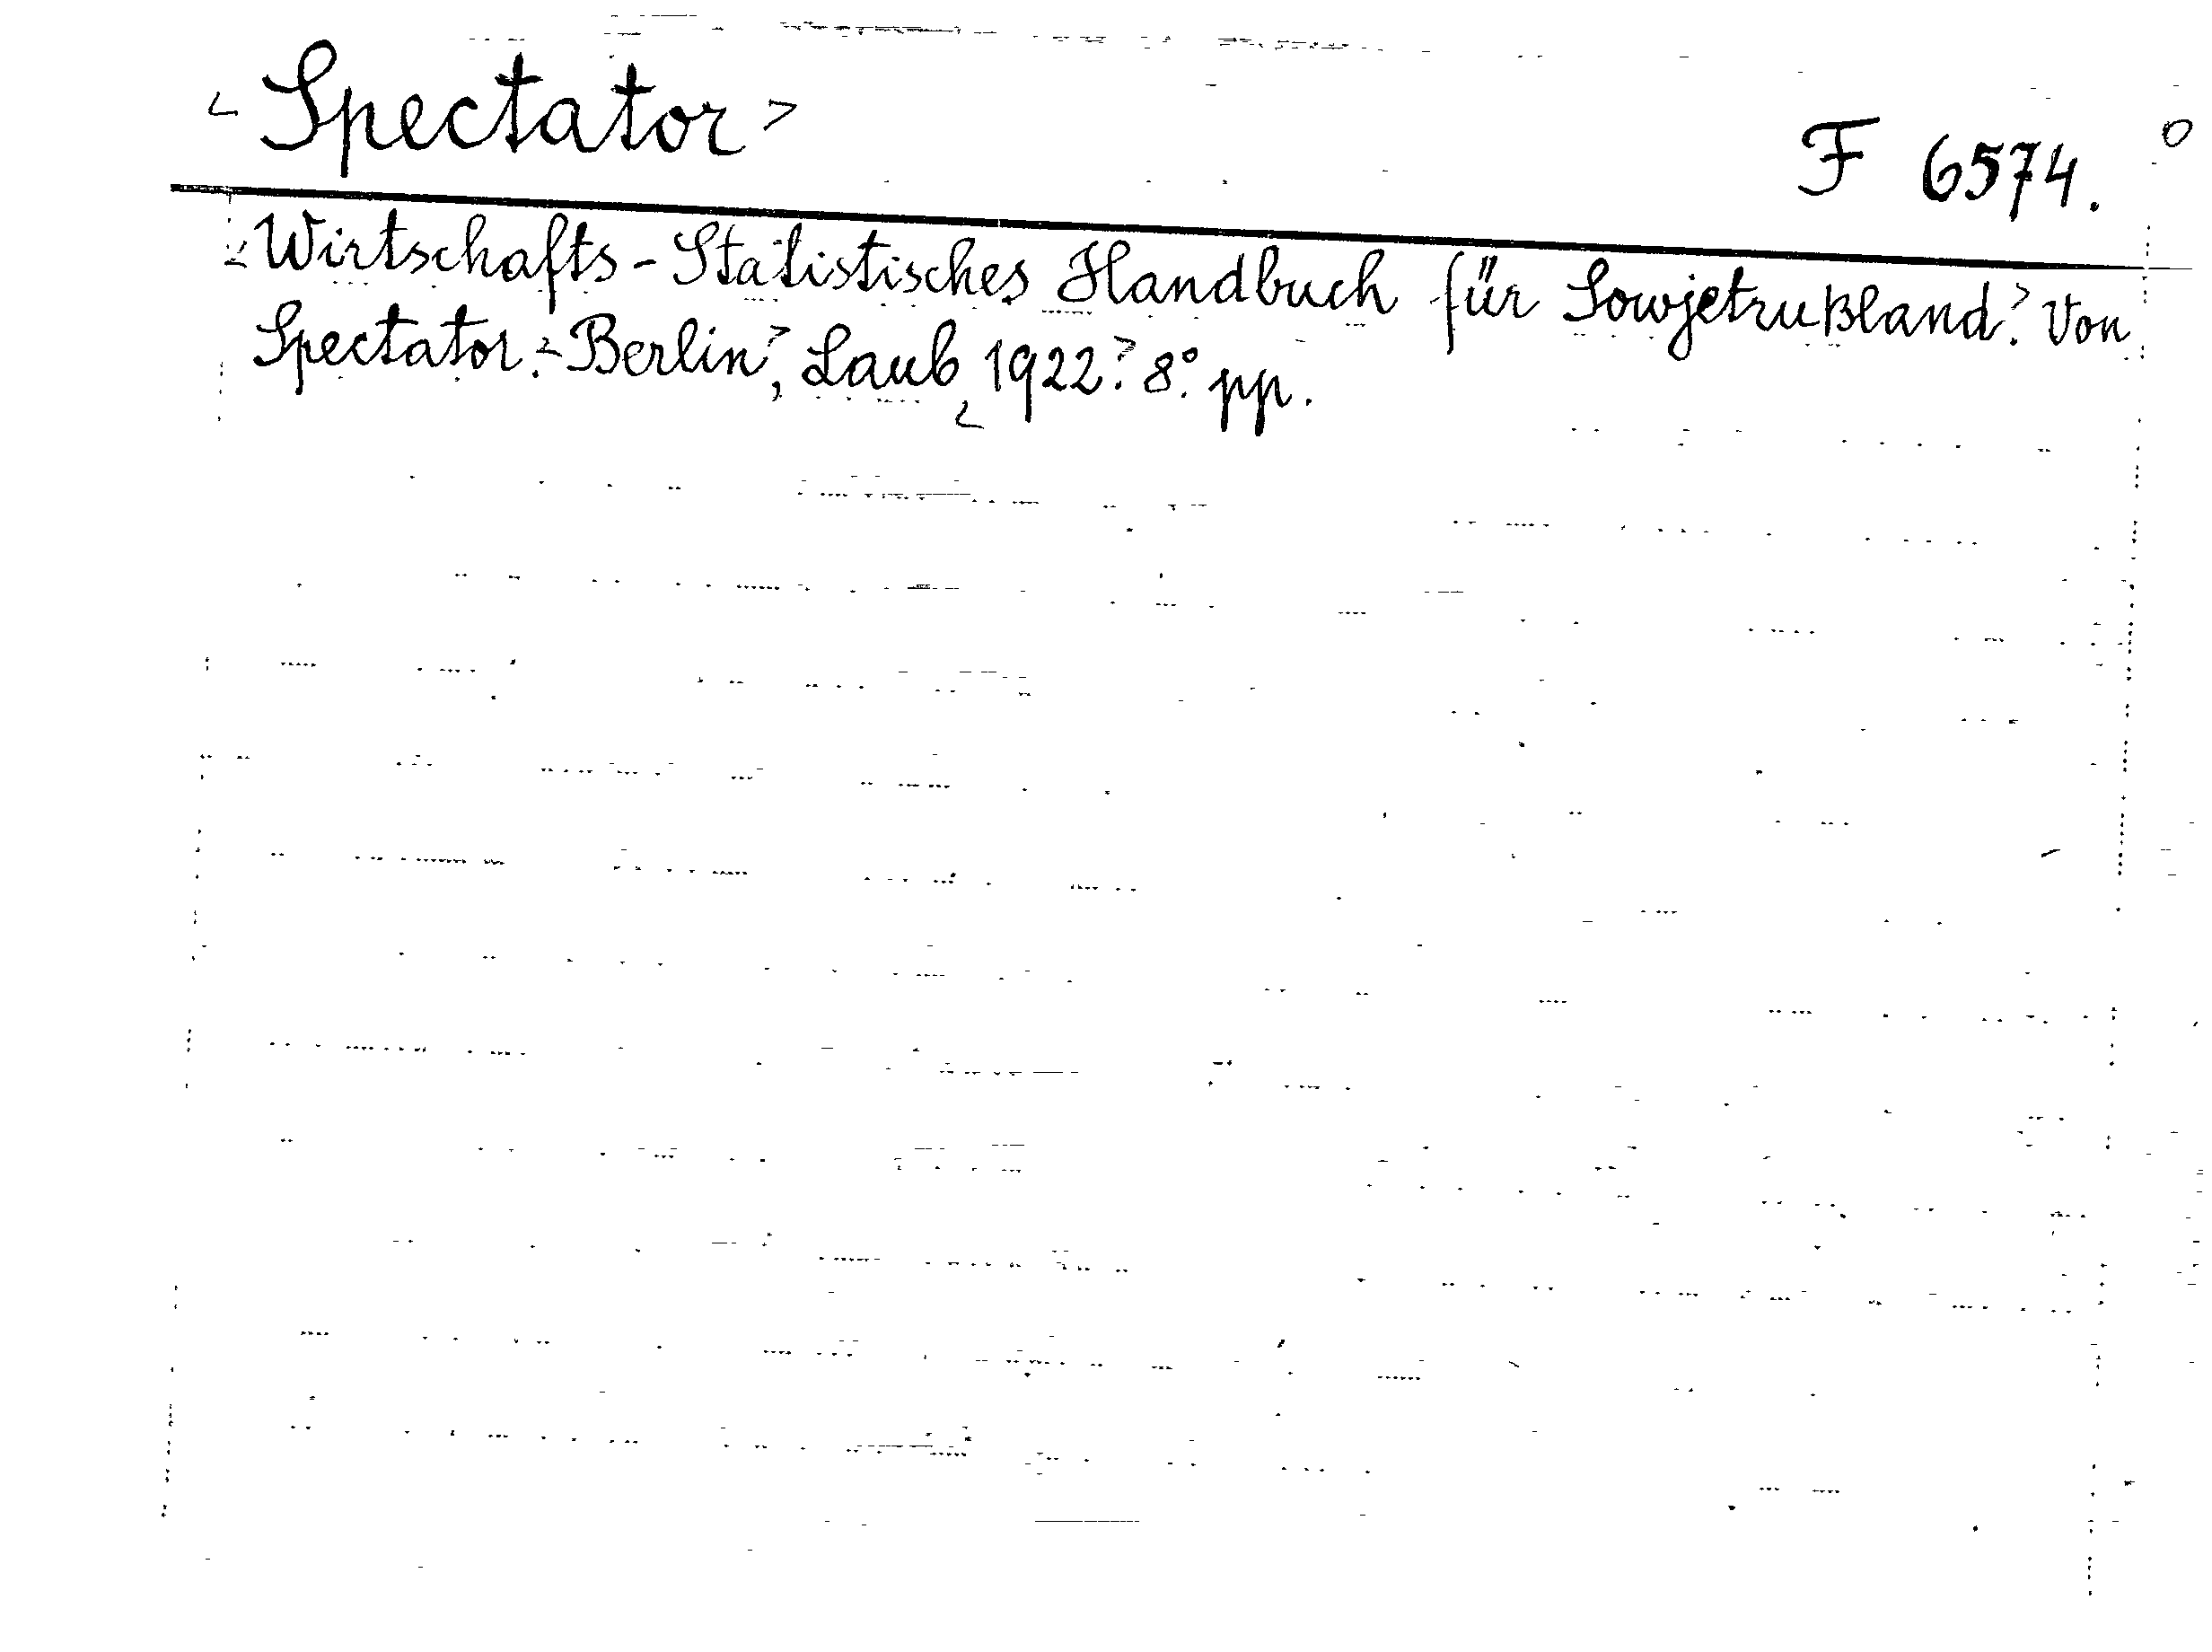 <Spectator>
F 6574.
<Wirtschafts-Statistisches Handbuch für Sowjetrußland.> Von
Spectator. <Berlin>, Laub, <1922>. 8°. pp.